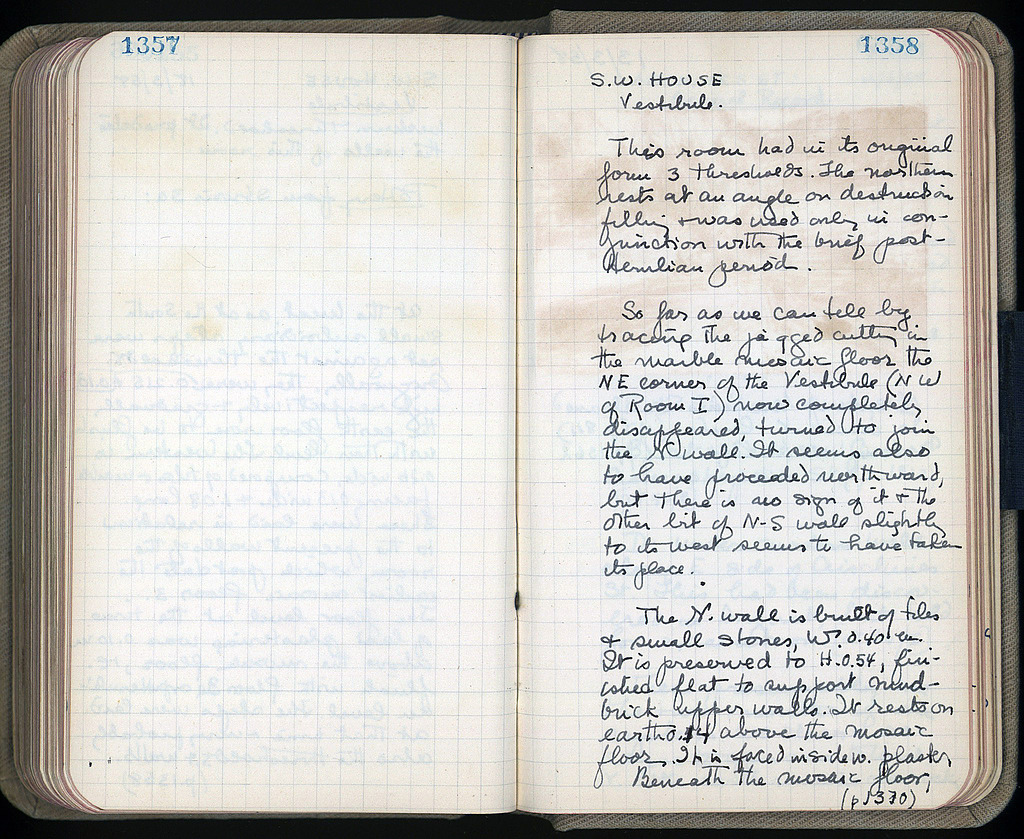 1357
1358
S.W. HOUSE
Vestibule.
This room had in its original
form 3 thresholds. The northern
rests at an angle on destruction
filling & was used only in con-
junction with the brief post-
Herulian period.
So far as we can tell by
tracing the jagged cutting in
the marble mosaic floor the
NE corner of the Vestibule (NW
of Room I) now completely
disappeared, turned to join
the N wall. It seems also
to have proceeded northward,
but there is no sign of it & the
other bit of N-S wall slightly
to its west seems to have taken
its place.
The N. wall is built of tiles
& small stones, W. 0.40 m.
It is preserved to H. 0.54, fini-
ished flat to support mud-
brick upper walls. It rests on
earth 0.14 above the mosaic
floor. It is faced inside w. plaster,
Beneath the mosaic floor,
(p 1370)